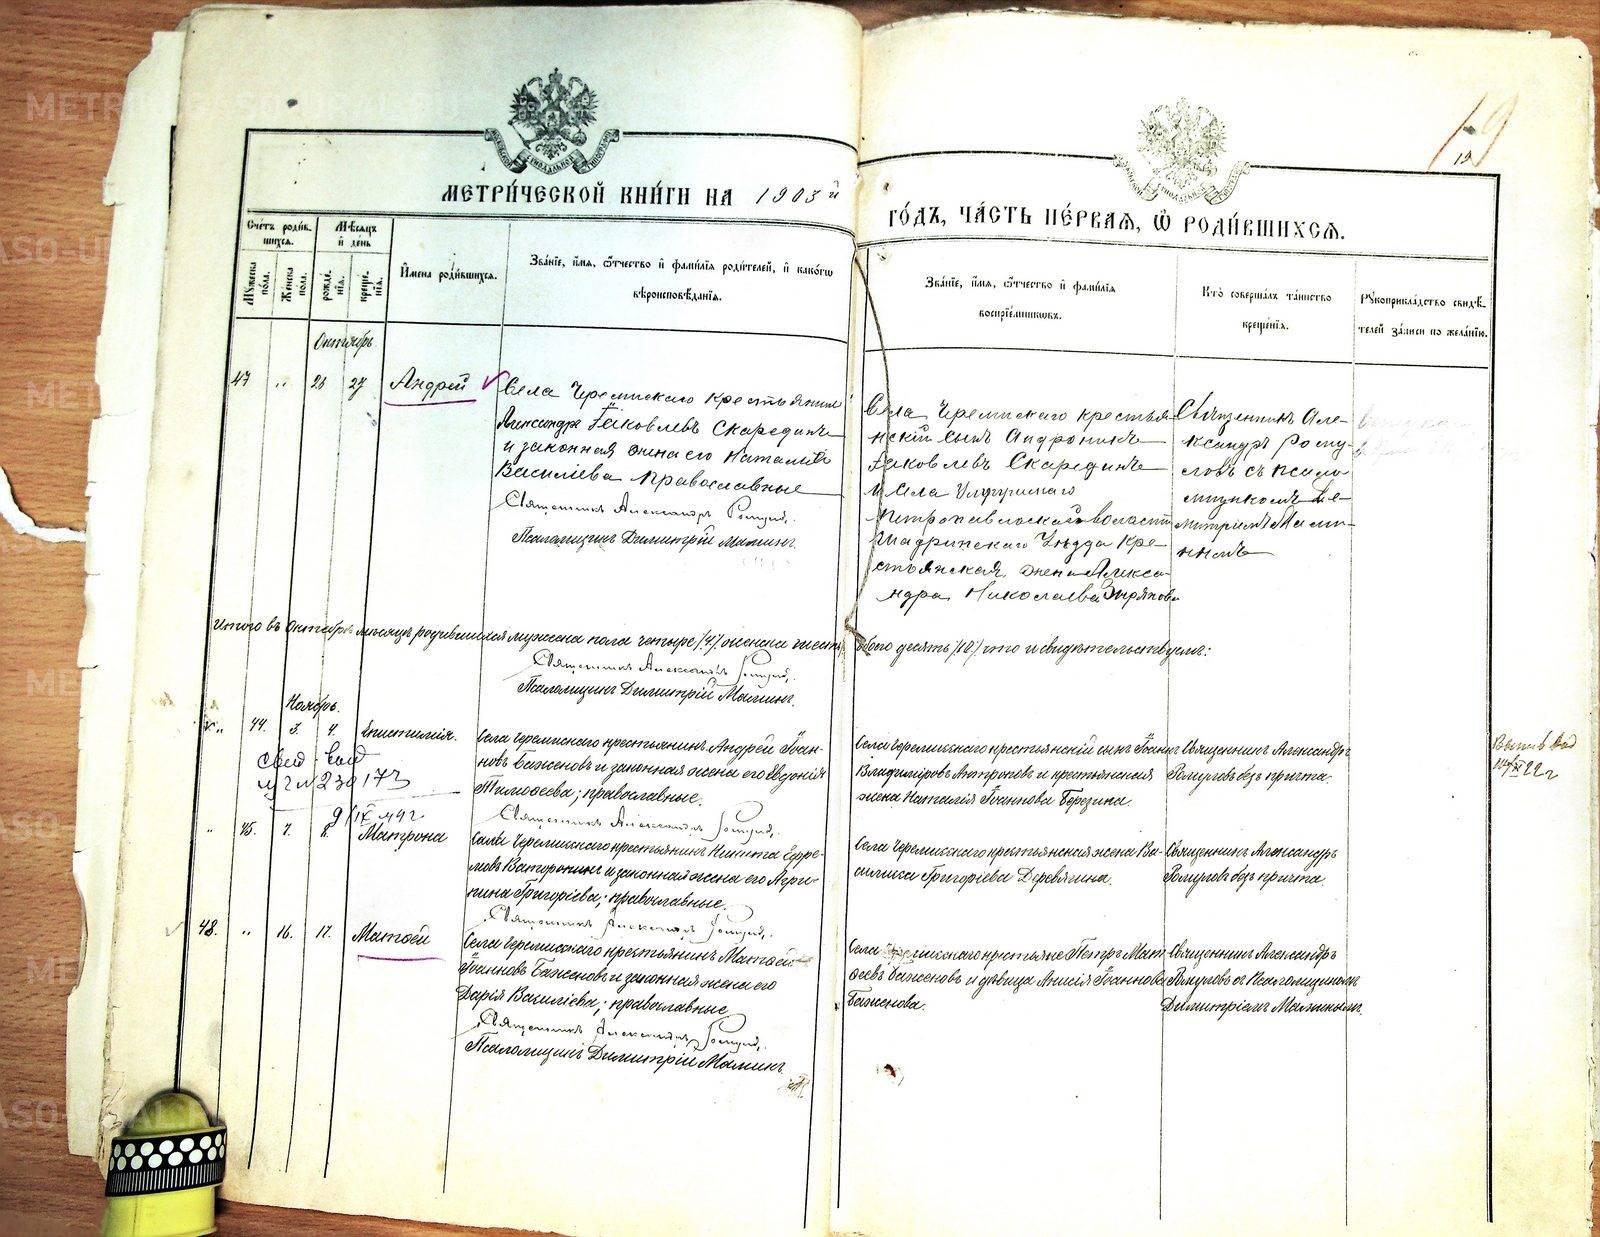 19
МЕТРИ́ЧЕСКОЙ КНИ́ГИ НА 1903й
ГО́ДЪ, ЧА́СТЬ ПЕ́РВАЯ, Ѡ РОДИ́ВШИХСЯ.
Счетъ роди́в-
шихся.
Мѣсяцъ
и день
Мужеска пола.
Женска пола.
рождé-
нія.
крещé-
нія.
Имена роди́вшихся.
Зва́ніе, имя, ѻтчество и фами́лія роди́телей, и какóгѡ
вѣроисповѣданія.
Зва́ніе, имя, ѻтчество и фами́лія
воспріе́мниковъ.
Кто̀ соверша́лъ та́инство
креще́нія.
Рукоприкла́дство свидѣ́-
телей за́писи по жела́нію.
Октябрь
47 " 26 27 Андрей
Села Черемисскаго крестьянинъ
Александръ Іаковлевъ Скарединъ
и законная жена его Наталія
Василіева православные
Священникъ Александръ Ромуловъ
Псаломщикъ Димитрій Маминъ.
Села Черемисскаго крестья-
нскій сынъ Андроникъ
Іаковлевъ Скарединъ
и Села
Петропавловской волости
Шадринскаго Уѣзда Кре-
стьянская жена Алекса-
ндра Николаева Зырянова
Священникъ Але-
ксандръ Рому-
ловъ съ псало-
мщикомъ Ди-
митріемъ Мами-
нымъ
Итого въ Октябрѣ мѣсяцѣ родившихся мужеска пола четыре /4/ женска шесть обоего десять /10/ что и свидѣтельствуемъ:
Священникъ Александръ Ромуловъ
Псаломщикъ Димитрій Маминъ.
Ноябрь.
" 44. 3. 4. Епистимія.
Села Черемисскаго крестьянинъ Андрей Іоан-
новъ Баженовъ и законная жена его Евдокія
Тимофеева; православные.
Священникъ Александръ Ромуловъ
Села Черемисскаго крестьянскій сынъ Іоаннъ
Владиміровъ Антроповъ и крестьянская
жена Наталія Іоаннова Березина.
Священникъ Александръ
Ромуловъ безъ причта.
" 45. 7. 8. Матрона
Села Черемисскаго крестьянинъ Никита Ефре-
мовъ Ваторопинъ и законная жена его Агри-
пина Григоріева; православные.
Священникъ Александръ Ромуловъ
Села Черемисскаго крестьянская жена Ва-
силиса Григоріева Деревягина.
Священникъ Александръ
Ромуловъ безъ причта.
48. " 16. 17. Матѳей
Села Черемисскаго крестьянинъ Матѳей
Іоанновъ Баженовъ и законная жена его
Дарія Василіева; православные
Священникъ Александръ Ромуловъ
Псаломщикъ Димитрій Маминъ.
Села Черемисскаго крестьяне Петръ Мат-
ѳеевъ Баженовъ и дѣвица Анисія Іоаннова
Баженова.
Священникъ Александръ
Ромуловъ съ Псаломщикомъ
Димитріемъ Маминымъ.